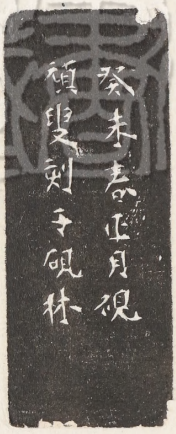 癸未春正月硯
叟刻于硯林